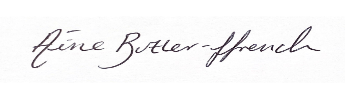 Aine Butler-ffrench